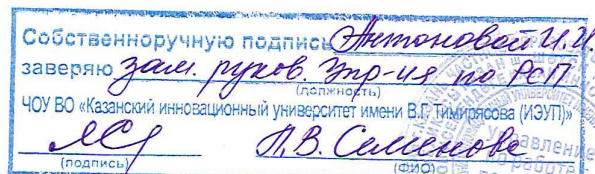 Собственноручную подпись Антоновой И.И.
заверяю зам. руков. Упр-ия по РСП
(должность)
ЧОУ ВО «Казанский инновационный университет имени В.Г. Тимирясова (ИЭУП)»
Л.В. Семенова
(подпись) (ФИО)
Управление
по работе